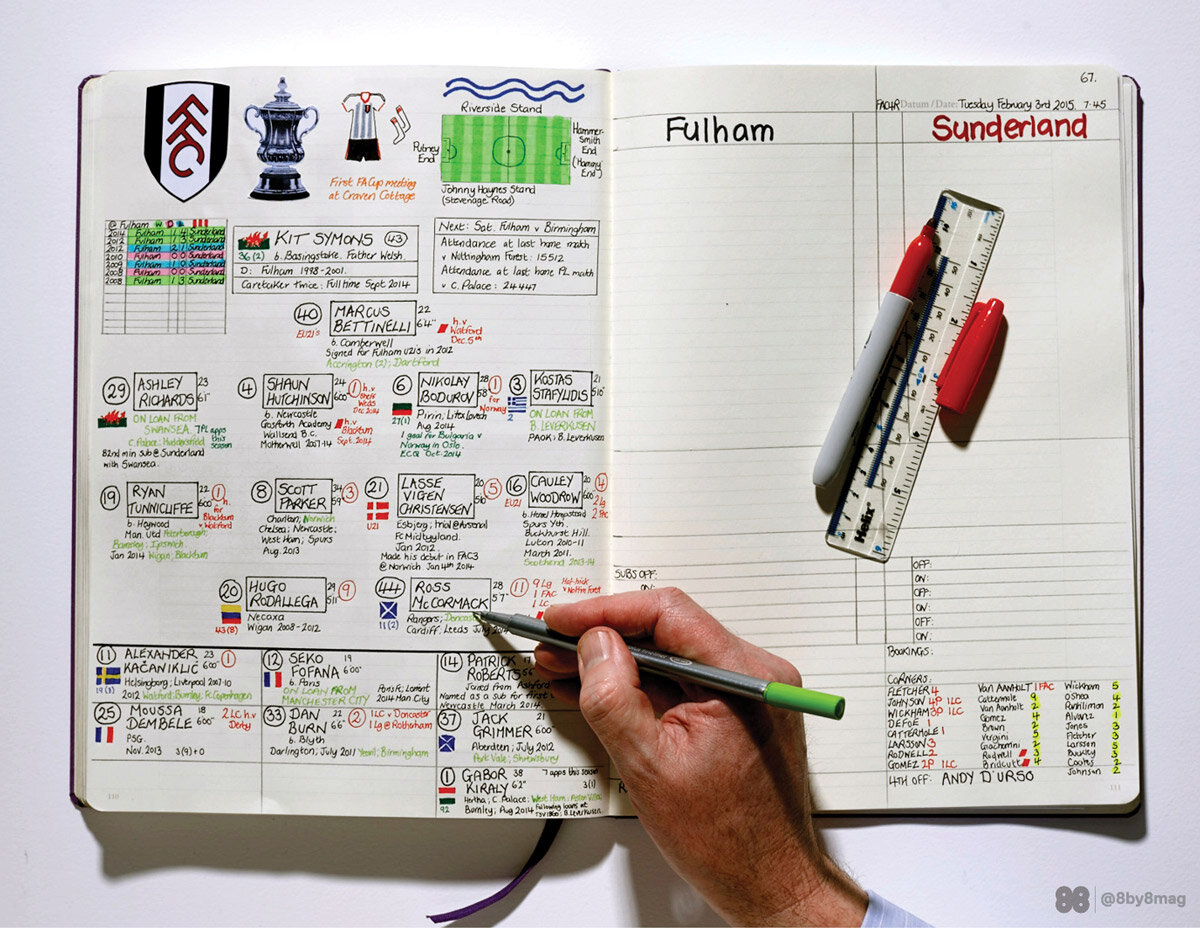 FFC
Riverside Stand
Putney
End
Hammer-
Smith
End
(Hammy
End)
First FA Cup meeting
at Craven Cottage
Johnny Haynes Stand
(Stevenage Road)
@ Fulham W D
2014 Fulham 1 4 Sunderland
2012 Fulham 1 3 Sunderland
2012 Fulham 2 1 Sunderland
2010 Fulham 0 0 Sunderland
2009 Fulham 1 0 Sunderland
2008 Fulham 0 0 Sunderland
2008 Fulham 1 3 Sunderland
KIT SYMONS 43
36 (2) b. Basingstoke. Father Welsh
D: Fulham 1998-2001.
Caretaker twice: Full time Sept 2014
Next: Sat. Fulham v Birmingham
Attendance at last home match
v Nottingham Forest: 15512
Attendance at last home PL math
v C. Palace: 24447
40 MARCUS BETTINELLI 22
6'4"
EU21's
h.v
Watford
Dec. 5th
b. Camberwell
Signed for Fulham u21s in 2012
Accrington (2); Dartford
29 ASHLEY RICHARDS 23
6'1"
ON LOAN FROM
SWANSEA. 7PL apps
this
season
C. Palace: Huddersfield
82nd min sub @ Sunderland
with Swansea.
4 SHAUN HUTCHINSON 24
6'00"
1 h.v
Sheff
Weds
Dec 2014
b. Newcastle
Gosforth Academy
Wallsend B.C.
Motherwell 2007-14
h.v
Blackburn
Sept. 2014
6 NIKOLAY BODUROV 28
5'8"
1 for
Norway
27(1)
Pirin; Litx Lovech
Aug 2014
1 goal for Bulgaria v
Norway in Oslo.
ECQ Oct. 2014
3 KOSTAS STAFYLIDIS 21
5'10"
2
ON LOAN FROM
B. LEVERKUSEN
PAOK; B. Leverkusen
19 RYAN TUNNICLIFFE 22
6'00"
1 h.
for
Blackburn
v Watford
b. Heywood
Man. Utd Peterborough;
Barnsley; Ipswich.
Jan 2014 Wigan; Blackburn
8 SCOTT PARKER 34
5'9"
3
Charlton; Norwich
Chelsea; Newcastle;
West Ham; Spurs
Aug. 2013
21 LASSE VIGEN CHRISTENSEN 20
5'10"
5
U21
Esbjerg; trial @ Arsenal
FC Midtyylland.
Jan 2012.
Made his debut in FAC3
@ Norwich Jan 4th 2014
16 CAULEY WOODROW 20
6'00"
4
2 Lg
2 FAC
EU21
b. Hemel Hempstead
Spurs Yth.
Buckhurst Hill.
Luton 2010-11
March 2011.
Southend 2013-14
20 HUGO RODALLEGA 29
5'11"
9
43(8)
Necaxa
Wigan 2008-2012
44 ROSS McCORMACK 28
5'7"
11
9 Lg
1 FAC
1 LC
Hat-trick
v Nottm Forest
11(2)
Rangers; Doncaster
Cardiff; Leeds July 2014
11 ALEXANDER KAČANIKLIĆ 23
6'00"
1
19(3)
Helsingborg; Liverpool 2007-10
2012 Watford; Burnley; FC Copenhagen
12 SEKO FOFANA 19
6'00"
b. Paris
ON LOAN FROM
MANCHESTER CITY
Paris FC; Lorient
2014 Man City
14 PATRICK ROBERTS 17
5'6"
Joined from Ashford
Named as a sub for first
Newcastle March 2014
25 MOUSSA DEMBELE 18
6'00"
2 LC h.v
Derby
PSG.
Nov. 2013 3(9)+0
33 DAN BURN 22
6'6"
2
1LC v Doncaster
1Lg @ Rotherham
b. Blyth
Darlington; July 2011 Yeovil; Birmingham
37 JACK GRIMMER 21
6'00"
Aberdeen; July 2012
Port Vale; Shrewsbury
1 GABOR KIRALY 38
6'2"
7 apps this season
3(1)
92
Hertha; C. Palace; West Ham; Aston Villa;
Burnley; Aug 2014 following loans at
TSV 1860; B. Leverkusen
110
67.
FAC4R Datum / Date: Tuesday February 3rd 2015. 7.45
Fulham
Sunderland
Helix
SUBS OFF:
ON:
OFF:
ON:
OFF:
ON:
OFF:
ON:
BOOKINGS:
CORNERS:
FLETCHER 4 Van Aanholt 1 FAC Wickham 5
JOHNSON 4P 1LC Cattermole 9 Oshea 4
WICKHAM 3P 1LC Van Aanholt 2 Ruthilimon 2
DEFOE 1 Gomez 4 Alvarez 1
CATTERMOLE 1 Brown 2 Jones 3
LARSSON 3 Vergini 5 Fletcher 3
RODWELL 2 Giacherrini 2 Larsson 5
GOMEZ 2P 1LC Rodwell 3 Buckley 3
Bridcutt 4 Coates 2
Johnson 2
4TH OFF: ANDY D'URSO
111
88 @8by8mag